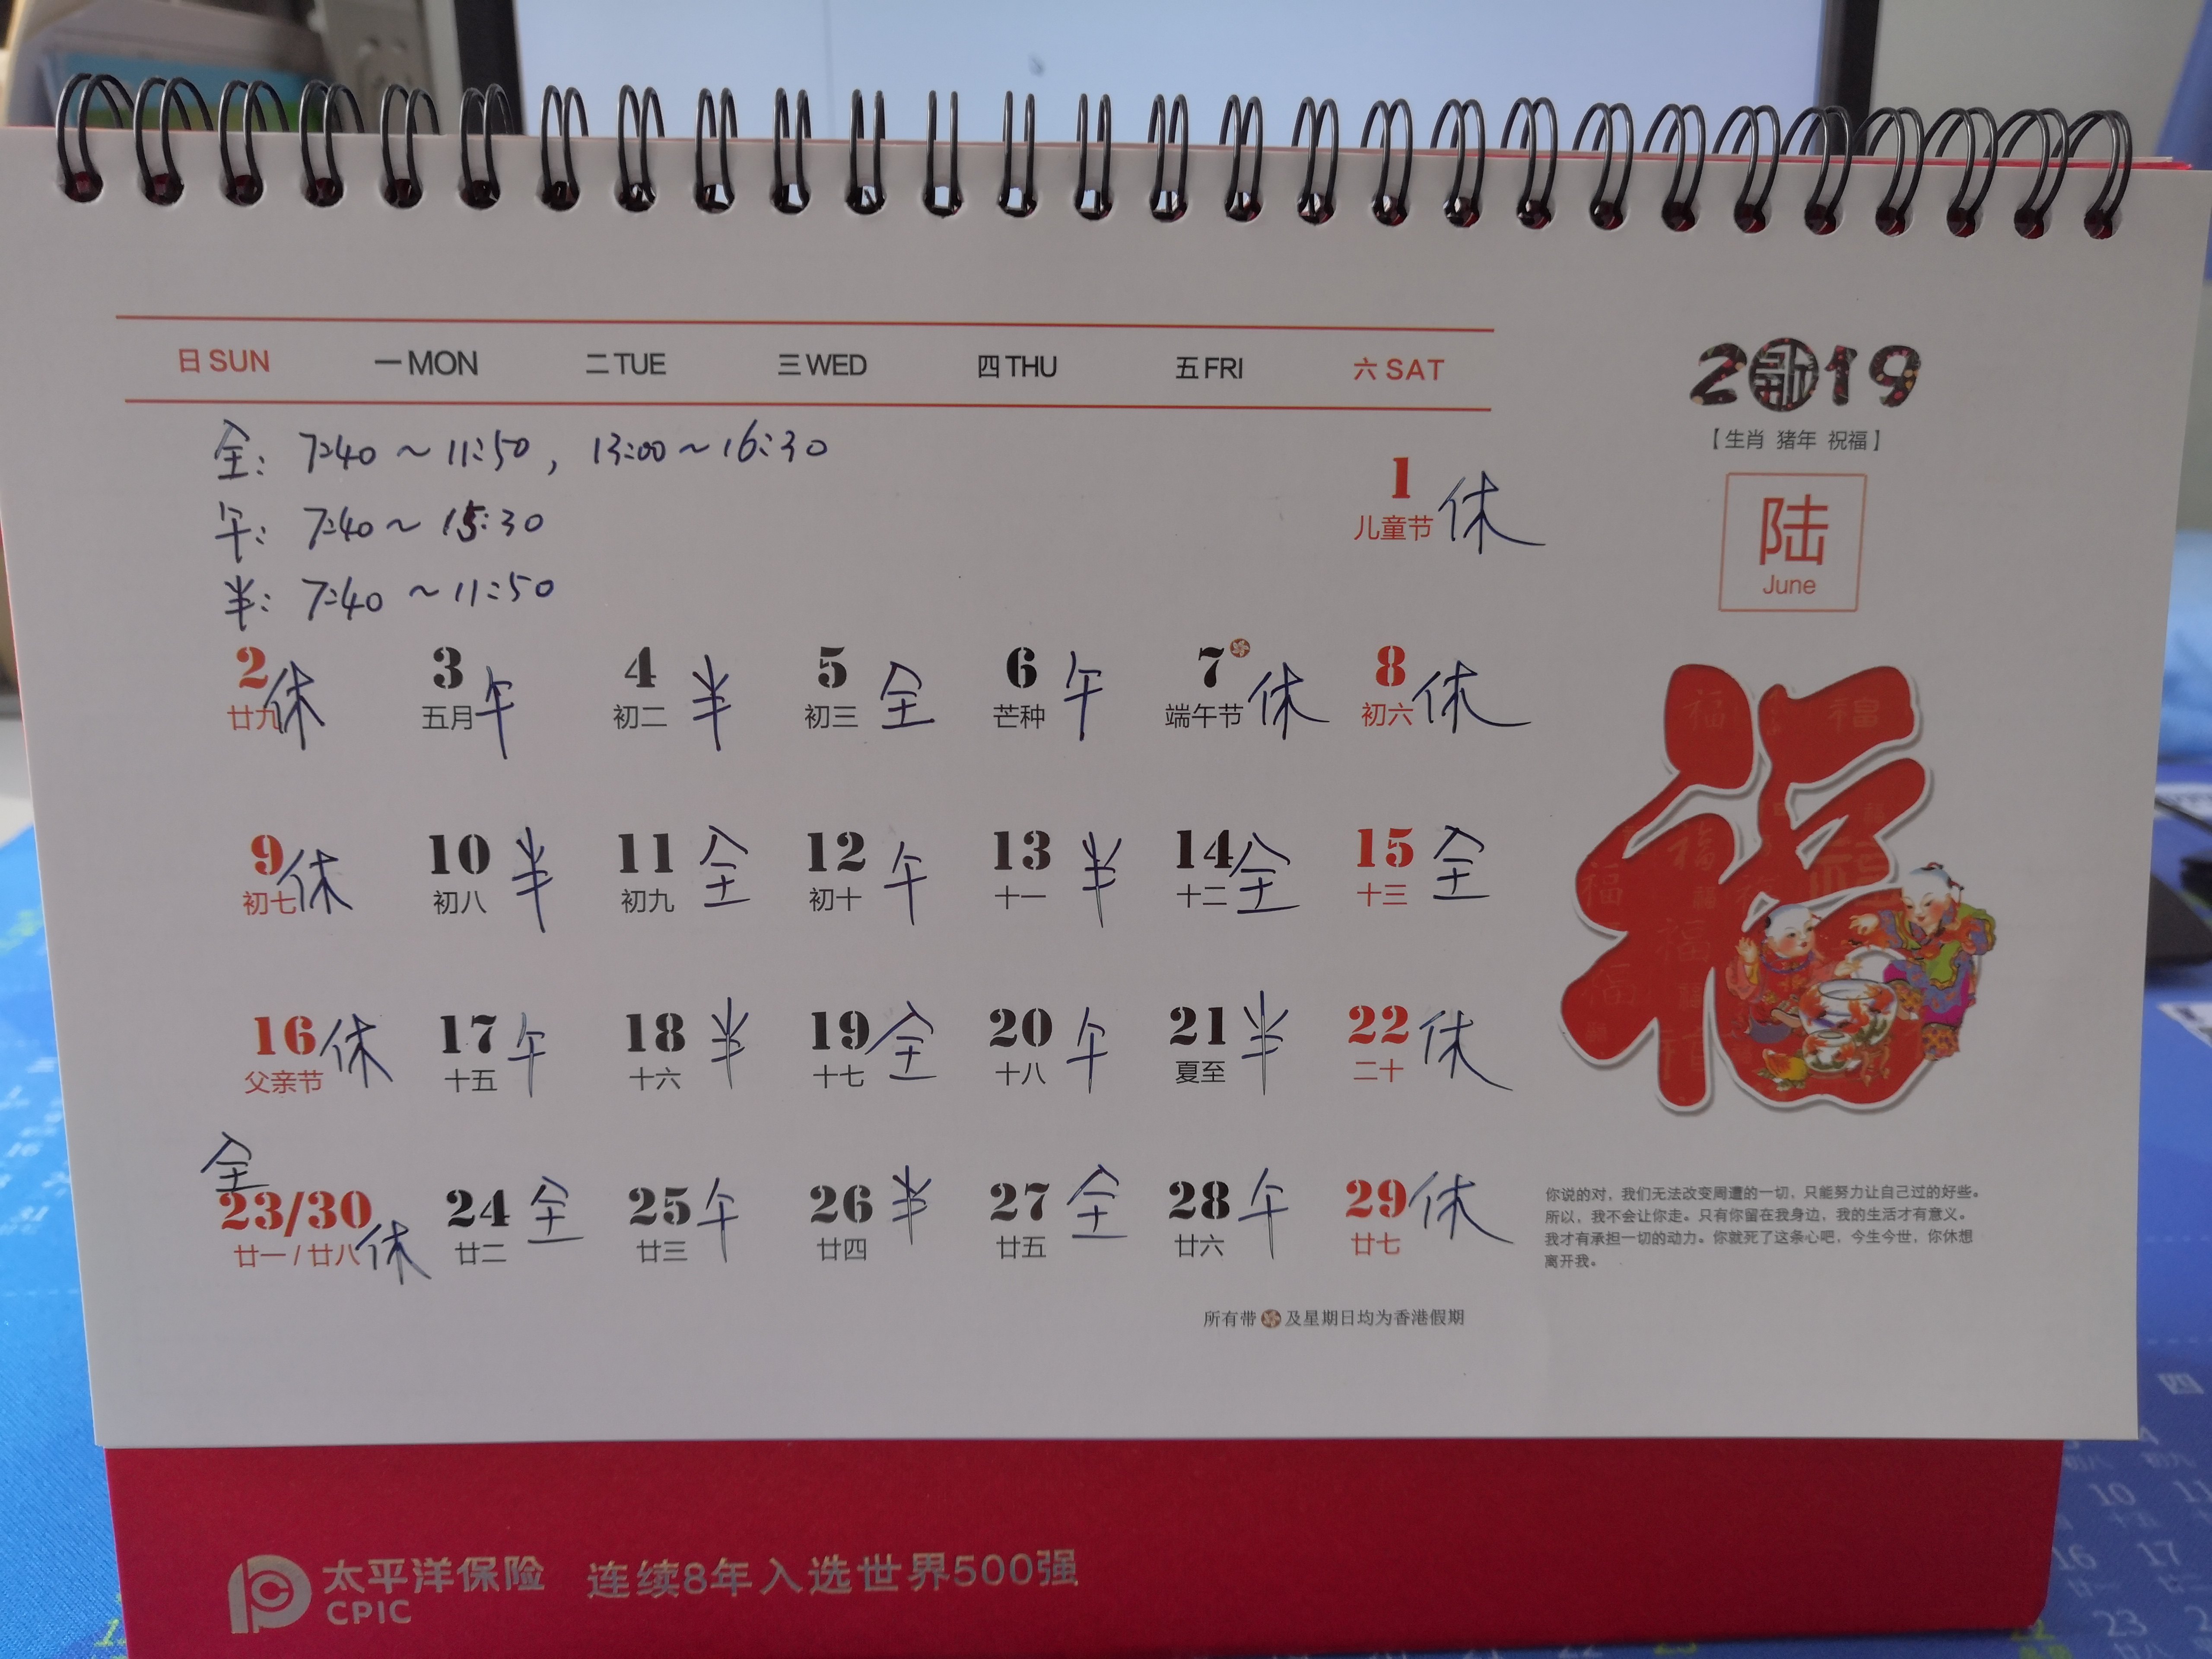 日SUN 一MON 二TUE 三WED 四THU 五FRI 六SAT
2019
【生肖 猪年 祝福】
陆
June
全: 7:40~11:50, 13:00~16:30
午: 7:40~15:30
半: 7:40~11:50
1 休
儿童节
2 休 3 午 4 半 5 全 6 午 7 休 8 休
廿九 五月 初二 初三 芒种 端午节 初六
9 休 10 半 11 全 12 午 13 半 14 全 15 全
初七 初八 初九 初十 十一 十二 十三
16 休 17 午 18 半 19 全 20 午 21 半 22 休
父亲节 十五 十六 十七 十八 夏至 二十
全
23/30 休 24 全 25 午 26 半 27 全 28 午 29 休
廿一/廿八 廿二 廿三 廿四 廿五 廿六 廿七
福
你说的对，我们无法改变周遭的一切，只能努力让自己过的好些。
所以，我不会让你走。只有你留在我身边，我的生活才有意义。
我才有承担一切的动力。你就死了这条心吧，今生今世，你休想
离开我。
所有带 及星期日均为香港假期
太平洋保险 连续8年入选世界500强
CPIC